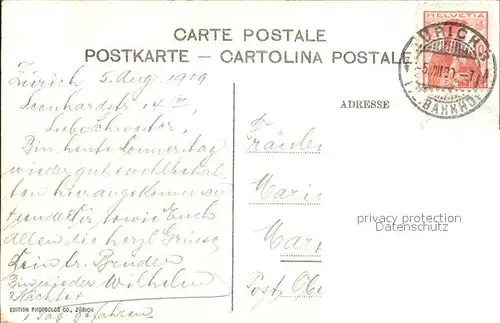 CARTE POSTALE
POSTKARTE – CARTOLINA POSTALE
HELVETIA
ZÜRICH
BAHNHOF
ADRESSE
Zürich 5. Aug. 1909
Leonhardstr 14 III
Liebe Schwester,
Bin heute Donnerstag
wieder gut & wohlbehal-
ten hier angekommen
sende Dir, sowie Euch
allen die herzl. Grüsse
Dein tr. Bruder
Wilhelm
Nächte
1 Tag gefahren
Fräulein
Marie
Mar
Post Obe
privacy protection
Datenschutz
EDITION PHOTOGLOB CO., ZÜRICH